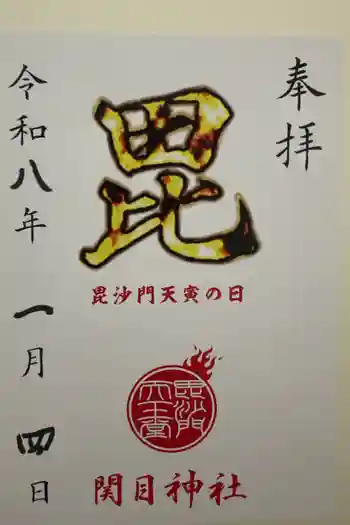 奉拝
毘
毘沙門天寅の日
毘沙門
天王堂
関目神社
令和八年 一月 四日